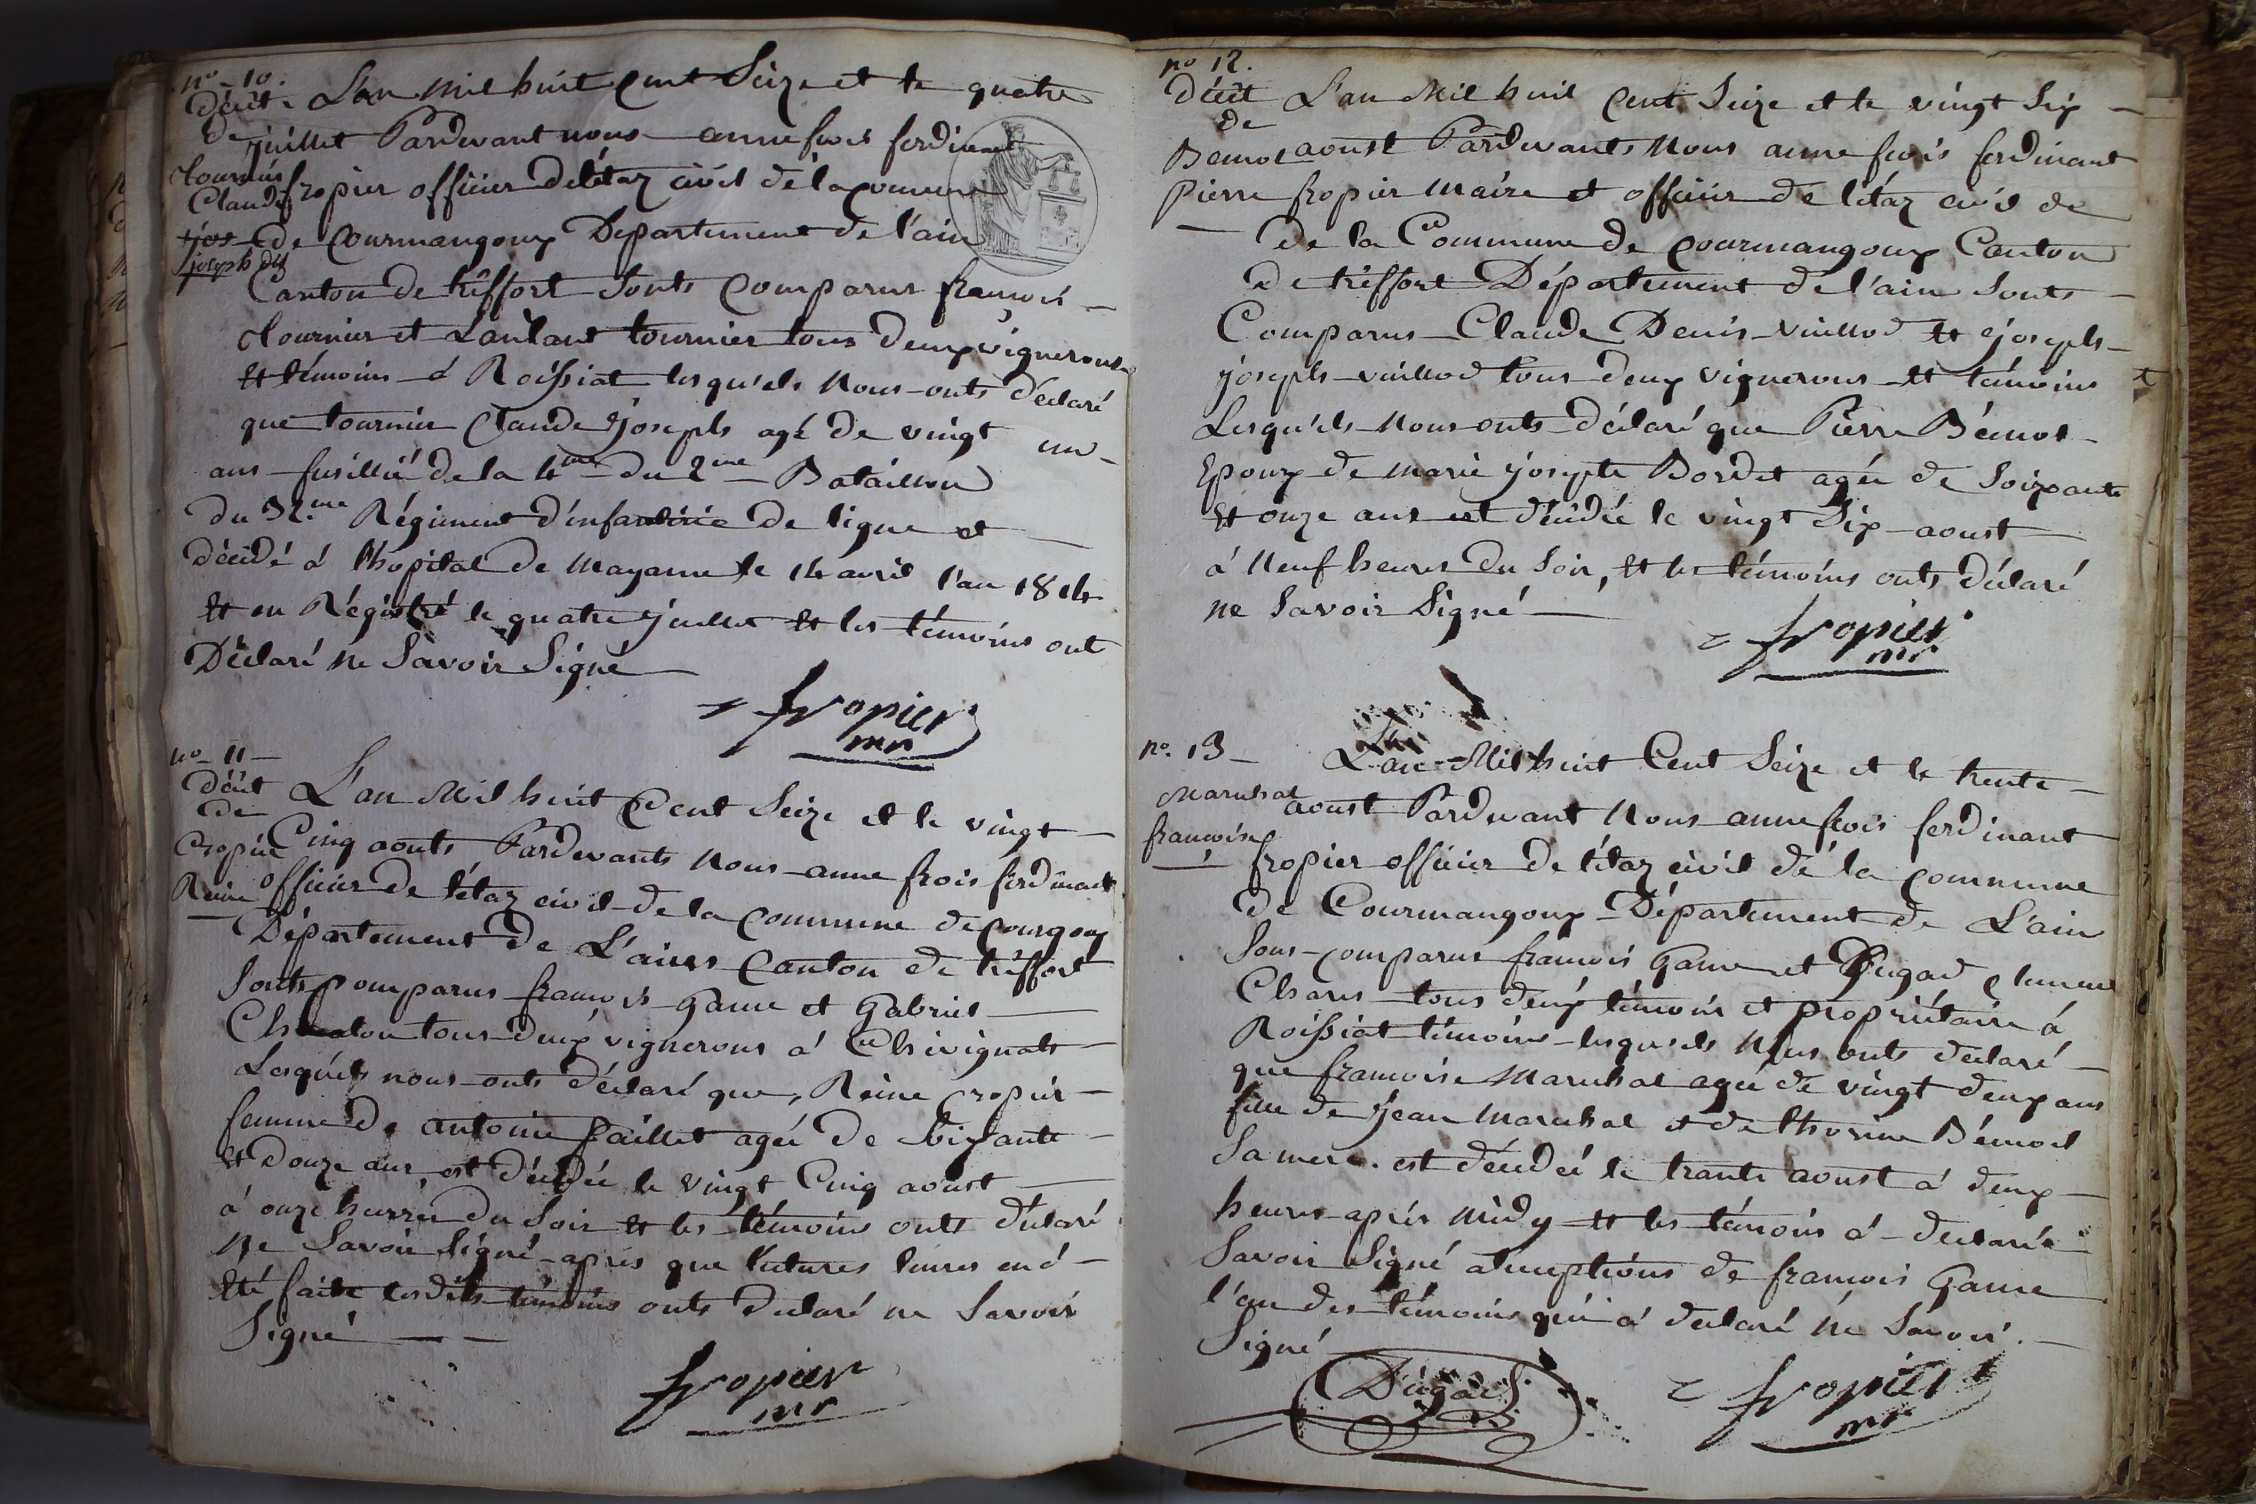 n° 10.
Décé L'an mil huit cent Seize et le quatre
de juillet Pardevant nous anne frois ferdinant
tournier
Claude fropier officier de létaz civil de la commune
jos de Courmangoux Département de l'ain
joseph dit
Canton de treffort Sonts Comparus françois
tournier et Lautant tournier tous deux vignerons
et témoins á Roissiat lesquéls Nous onts déclaré
que tournier Claude joseph agé de vingt un
ans fusillié de la 4me du 2me Bataillon
du 32.me Régiment d'infantirie de ligne et
décédé á l'hopital de mayanne le 14 avril l'an 1814
et en Régistré le quatre juillet et les témoins ont
Déclaré ne Savoir Signé
fropier
mr
n° 11
décét L'an Mil huit Cent Seize et le vingt
de
cropier Cinq aouts Pardevants Nous anne frois ferdinant
Reine officier de létaz civil de la commune de courgoux
Département de L'ain Canton de treffort
Sonts Comparus francois Game et Gabriel
Chaton tous deux vignerons á Chivignats
Lesquéls nous onts déclaré que, Reine cropier
femme de antoine paillet agée de Soixante
et douze ans, est décédée le vingt Cinq aoust
á onze heurre du Soir et les témoins onts déclaré
ne Savoir Signé après que lectures leures en á
été faite lesdits témoins onts declaré ne Savoir
Signé
fropier
mr
n° 12.
décét L'an Mil huit Cent Seize et le vingt Six
de
Bemot aoust Pardevants Nous anne frois ferdinant
Pierre fropier Maire et officier de létaz civil de
de la Commune de Courmangoux Canton
de treffort Département de l'ain Sonts
Comparus Claude Denis vuillod et joseph
joseph vuillod tous deux vignerons et témoins
Lesquéls Nous onts déclaré que Pierre Bémot
Epoux de marie josepte Bordet agée de Soixante
et onze ans est décédée le vingt Six aoust
á Neuf heures du Soir, et les témoins onts déclaré
ne Savoir Signé
fropier
mr
n°. 13 L'an Mil huit Cent Seize et le trente
Maruhal aoust Pardevant Nous anne frois ferdinant
francoise fropier officier de létaz civil dé la commune
de Courmangoux Département de L'ain
Sons comparus francois Game et Dugad
Chares tous deux témoin et propriétaire á
Roissiat témoins lesquels Nous onts declaré
que francoise Maruhal agée de vingt deux ans
fille de jean Maruhal et de thorine Bémod
Sa mere. est décédeé le trante aoust á deux
heures après midy et les témoins á declarée
Savoir Signé aleuptions de francois Game
l'un des témoins qui á declaré ne Savoir
Signé
Dugad
fropier
mr